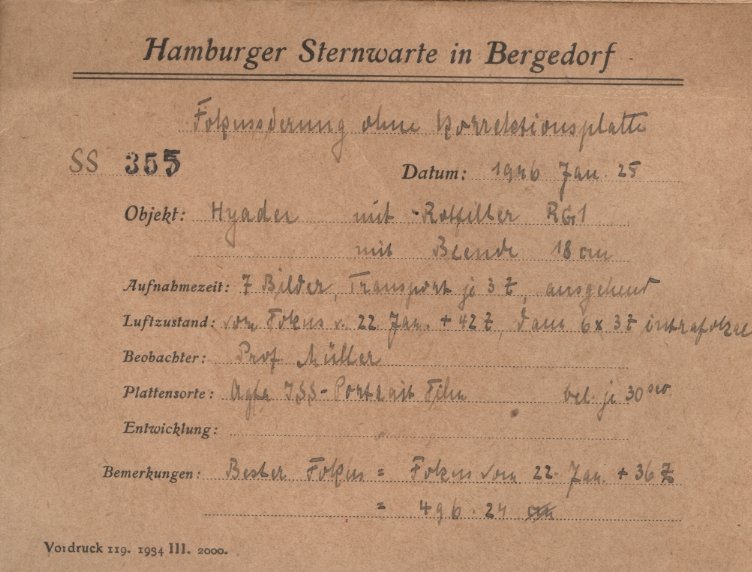 Hamburger Sternwarte in Bergedorf
Fokussierung ohne Korrektionsplatte
SS 355 Datum: 1946 Jan. 25
Objekt: Hyaden mit Rotfilter RG1
mit Blende 18 cm
Aufnahmezeit: 7 Bilder, Transport je 3 Z, ausgehend
Luftzustand: vom Fokus v. 22 Jan. + 42 Z, dann 6x 3Z intrafokal
Beobachter: Prof Müller
Plattensorte: Agfa ISS-Portrait Film bel. je 30 sec
Entwicklung:
Bemerkungen: Bester Fokus = Fokus vom 22. Jan. + 36 Z
= 496.24
Vordruck 119. 1934 III. 2000.